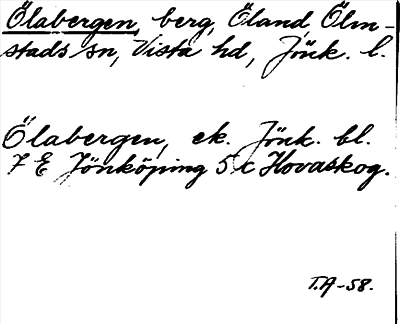 Ölabergen, berg, Öland, Ölm-
stads sn, Vista hd, Jönk. l.
Ölabergen, ek. Jönk. bl.
7 E Jönköping 5 c Hovaskog.
T.A-58.